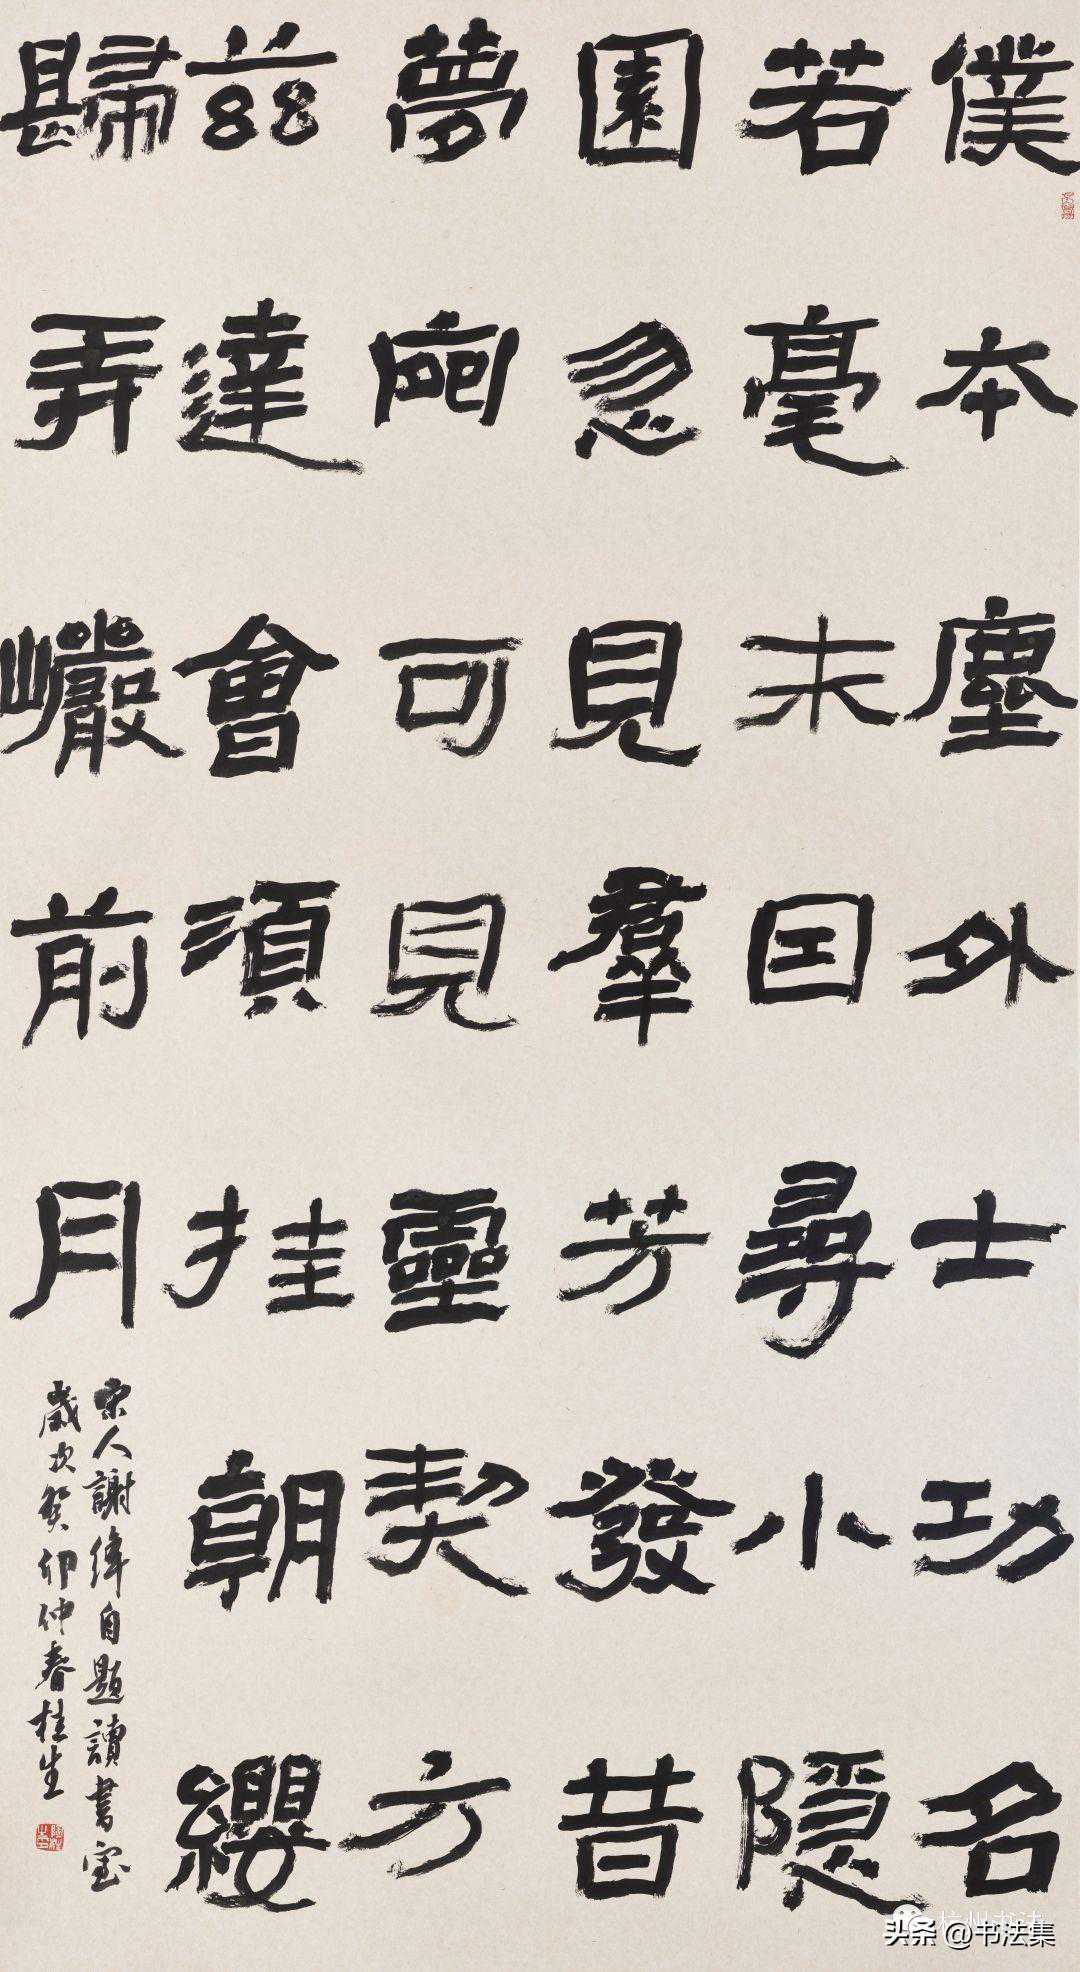 僕本塵外士功名
若毫末因尋小隱
園忽見羣芳發昔
夢宛可見靈契方
茲達會須挂朝纓
歸弄巖前月
宋人謝緯自題讀書室
歲次癸卯仲春桂生
杭州书法
头条 @书法集